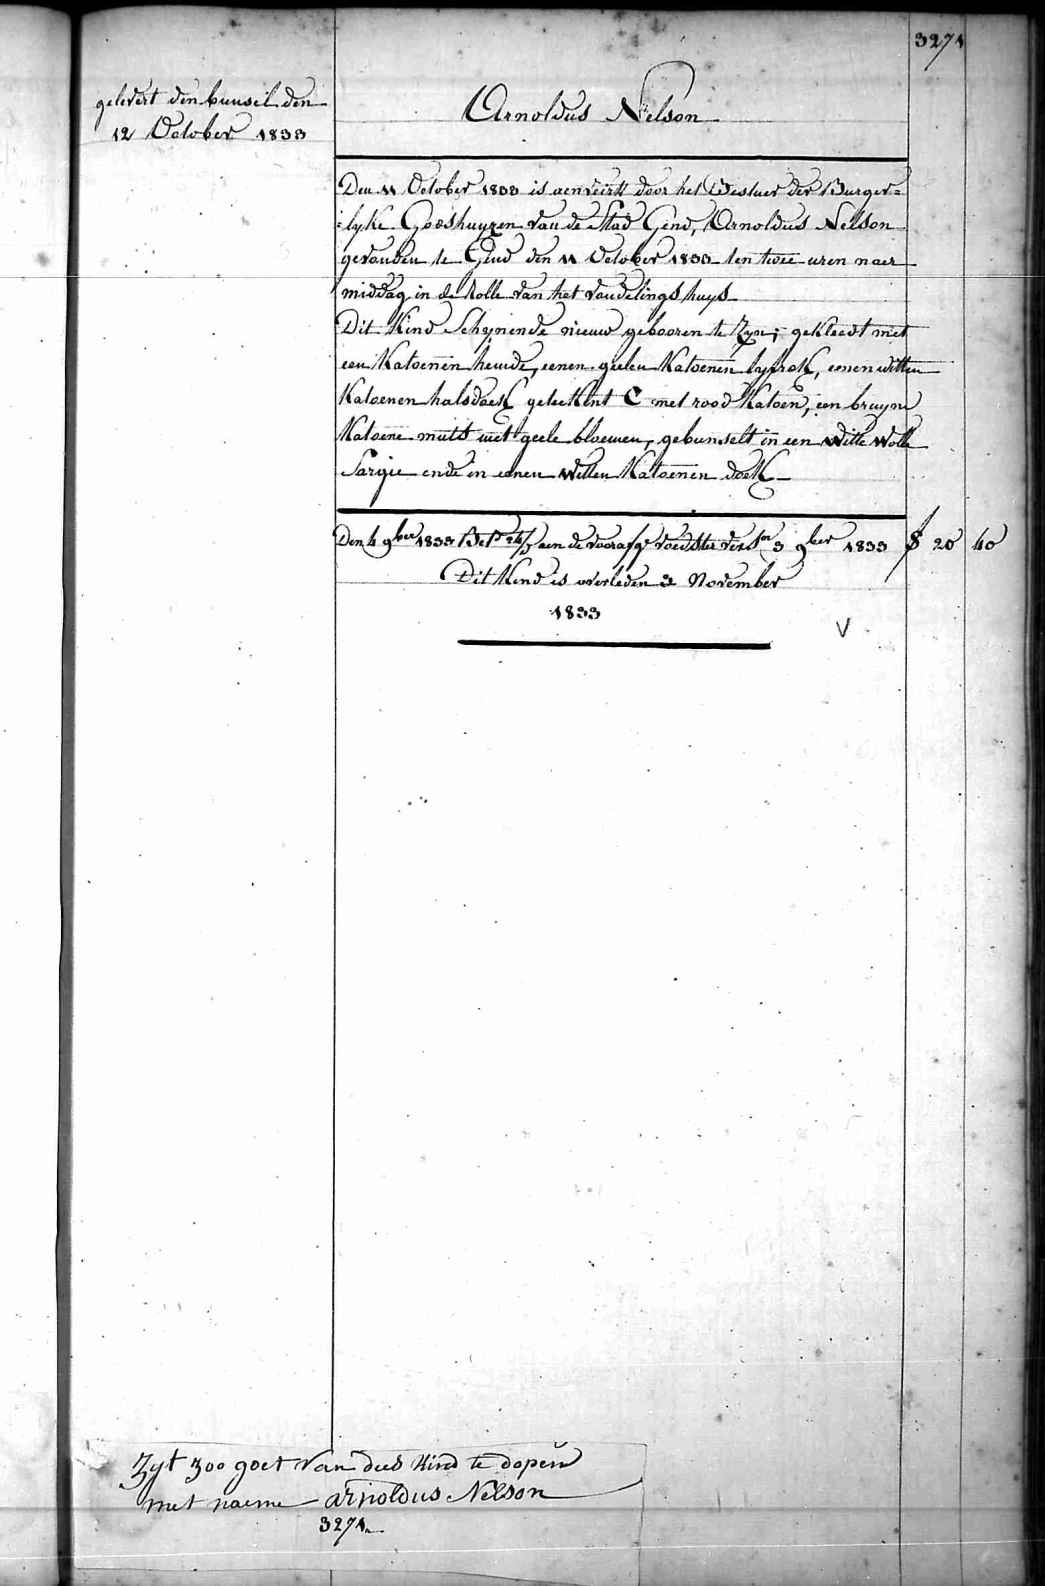 3271
gelevert den bunsel den
12 October 1833
Arnoldus Nelson
Den 11 October 1833 is aenveirt door het Bestuer der Burger=
=lyke Godshuyzen van de Stad Gend, Arnoldus Nelson
gevonden te Gend den 11 October 1833 ten twee uren naer
middag in de Rolle van het vondelings huys
Dit Kind Schynende nieuw gebooren te Zyn; gekleedt met
een Katoenen hemde, eenen geelen Katoenen lyfrok, eenen witten
Katoenen halsdoek geteekent C met rood Katoen, een bruyne
Katoene muts met geele bloemen, gebunselt in een Witte Wolle
Sargie ende in eenen Witten Katoenen doek
Den 4 9ber 1833 aen de voorafge voedster 3 9ber 1833 20 40
Dit Kind is overleden 3 November
1833
V
Zyt zoo goet van dees kind te dopen
met naeme arnoldus Nelson
3271